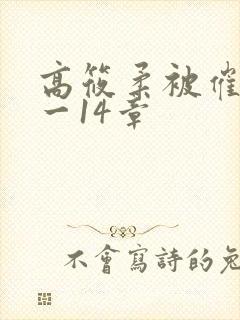 高筱柔被催
一14章
不會寫詩的兔